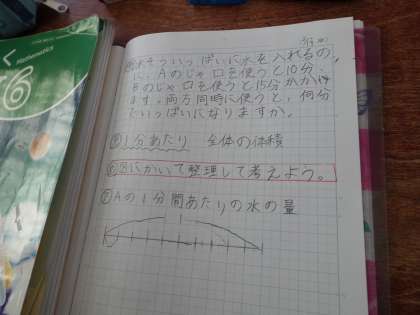 Mathematics
6
水そういっぱいに水を入れるの
に、Aのじゃ口を使うと10分、
Bのじゃ口を使うと15分かかり
ます。両方同時に使うと、何分
でいっぱいになりますか。
1分あたり 全体の体積
図にかいて整理して考えよう。
Aの1分間あたりの水の量
1